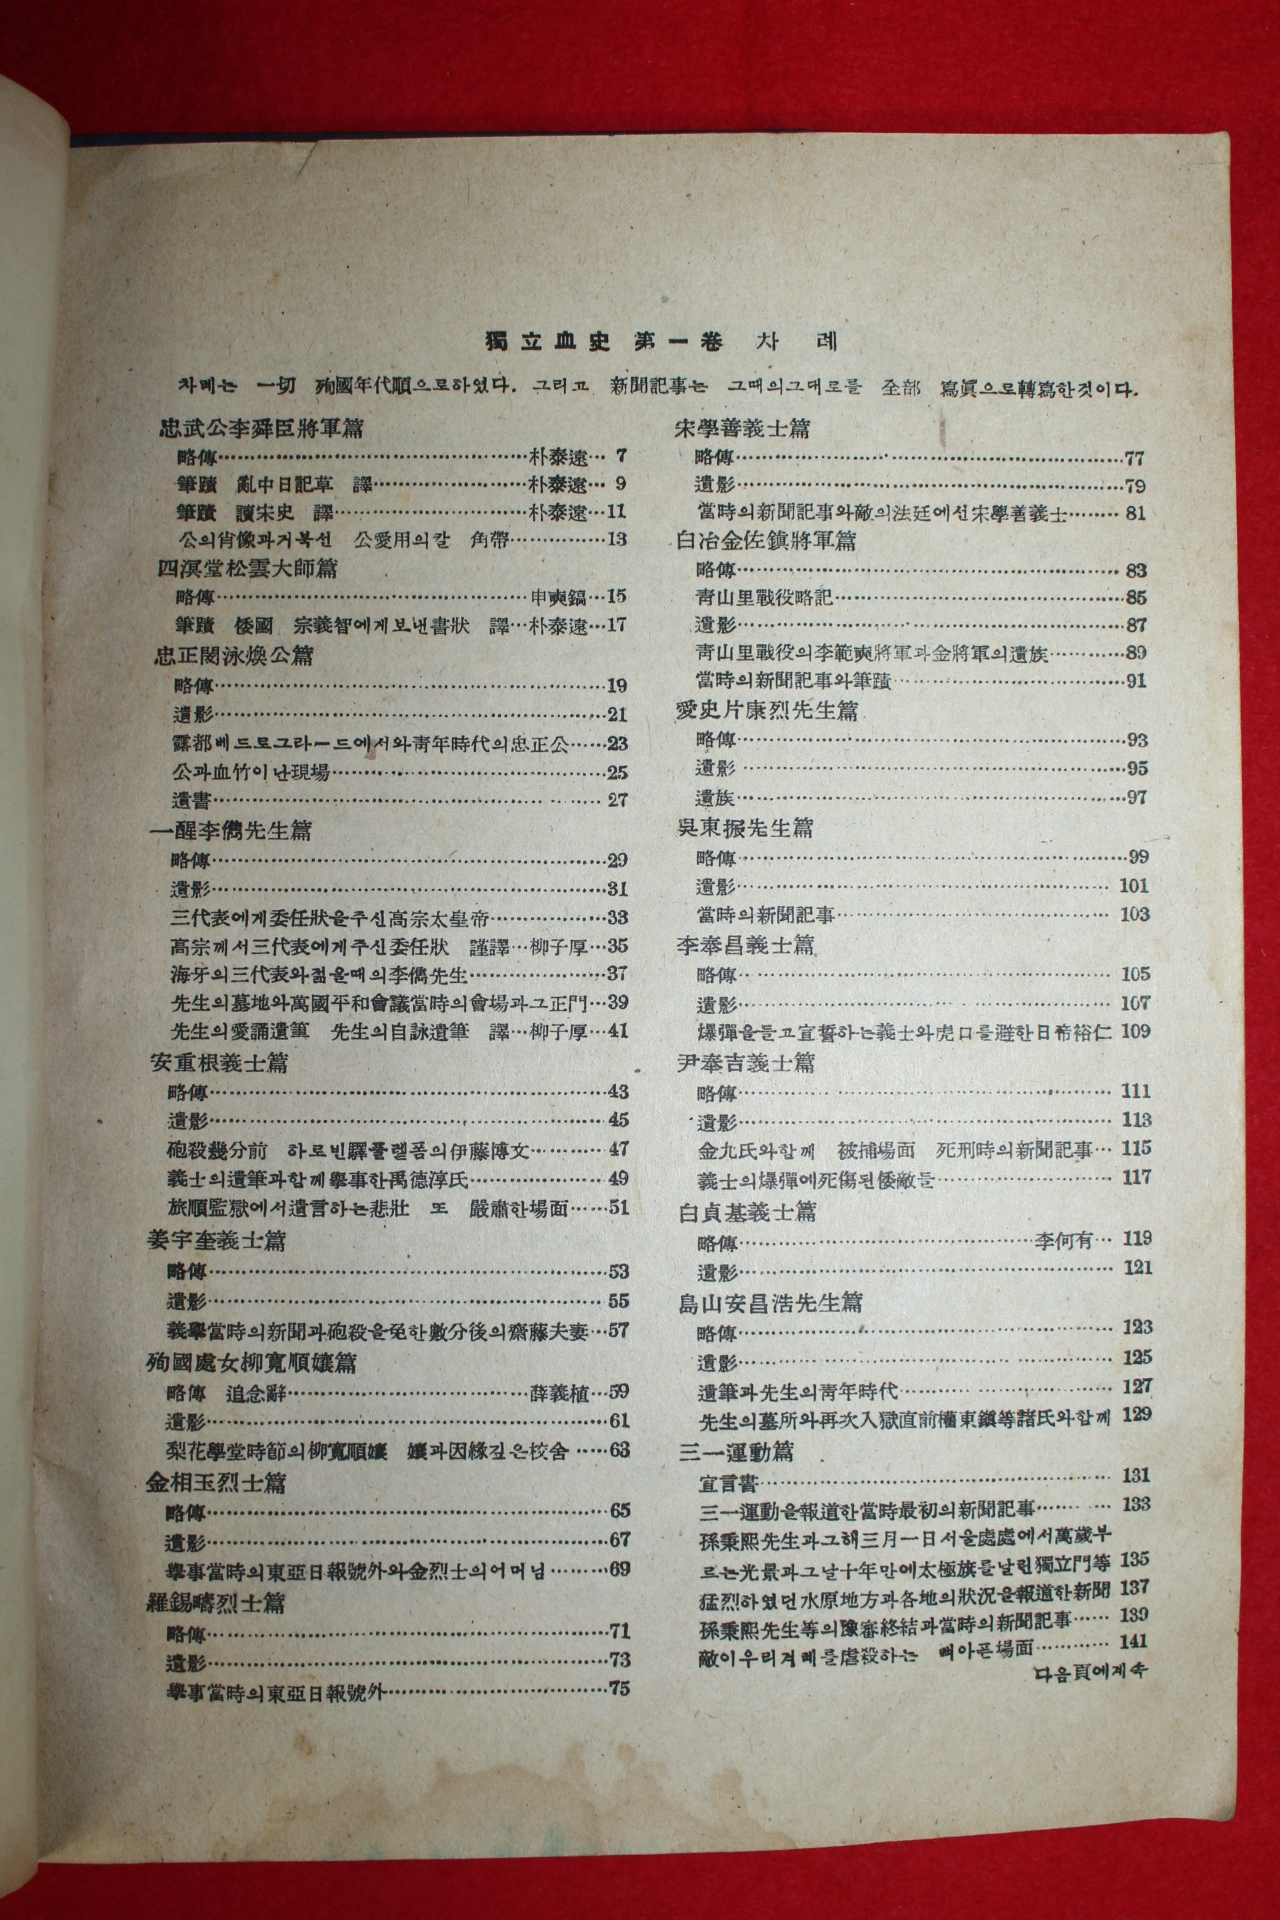 獨立血史 第一卷 차례
차례는 一切 殉國年代順으로하였다. 그리고 新聞記事는 그때의그대로를 全部 寫眞으로轉寫한것이다.
忠武公李舜臣將軍篇
略傳……朴泰遠… 7
筆蹟 亂中日記草 譯……朴泰遠… 9
筆蹟 讀宋史 譯……朴泰遠…11
公의肖像과거북선 公愛用의칼 角帶……13
四溟堂松雲大師篇
略傳……申奭鎬…15
筆蹟 倭國 宗義智에게보낸書狀 譯…朴泰遠…17
忠正閔泳煥公篇
略傳……19
遺影……21
露都베드로그라ー드에서와靑年時代의忠正公……23
公과血竹이난現場……25
遺書……27
一醒李儁先生篇
略傳……29
遺影……31
三代表에게委任狀을주신高宗太皇帝……33
高宗께서三代表에게주신委任狀 謹譯…柳子厚…35
海牙의三代表와젊을때의李儁先生……37
先生의墓地와萬國平和會議當時의會場과그正門…39
先生의愛誦遺筆 先生의自詠遺筆 譯…柳子厚…41
安重根義士篇
略傳……43
遺影……45
砲殺幾分前 하로빈驛플렡폼의伊藤博文……47
義士의遺筆과함께擧事한禹德淳氏……49
旅順監獄에서遺言하는悲壯 또 嚴肅한場面……51
姜宇奎義士篇
略傳……53
遺影……55
義擧當時의新聞과砲殺을免한數分後의齋藤夫妻…57
殉國處女柳寬順孃篇
略傳 追念辭……薛義植…59
遺影……61
梨花學堂時節의柳寬順孃 孃과因緣깊은校舍……63
金相玉烈士篇
略傳……65
遺影……67
擧事當時의東亞日報號外와金烈士의어머님………69
羅錫疇烈士篇
略傳……71
遺影……73
擧事當時의東亞日報號外……75
宋學善義士篇
略傳……77
遺影……79
當時의新聞記事와敵의法廷에선宋學善義士………81
白冶金佐鎭將軍篇
略傳……83
靑山里戰役略記……85
遺影……87
靑山里戰役의李範奭將軍과金將軍의遺族……89
當時의新聞記事와筆蹟……91
愛史片康烈先生篇
略傳……93
遺影……95
遺族……97
吳東振先生篇
略傳……99
遺影……101
當時의新聞記事……103
李奉昌義士篇
略傳……105
遺影……107
爆彈을들고宣誓하는義士와虎口를避한日帝裕仁 109
尹奉吉義士篇
略傳……111
遺影……113
金九氏와함께 被捕場面 死刑時의新聞記事… 115
義士의爆彈에死傷된倭敵들……117
白貞基義士篇
略傳……李何有… 119
遺影……121
島山安昌浩先生篇
略傳……123
遺影……125
遺筆과先生의靑年時代……127
先生의墓所와再次入獄直前權東鎭等諸氏와함께 129
三一運動篇
宣言書……131
三一運動을報道한當時最初의新聞記事……133
孫秉熙先生과그해三月一日서울處處에서萬歲부
르는光景과그날十年만에太極旗를날린獨立門等 135
猛烈하였던水原地方과各地의狀況을報道한新聞 137
孫秉熙先生等의豫審終結과當時의新聞記事…… 139
敵이우리겨레를虐殺하는 뼈아픈場面………… 141
다음頁에계속